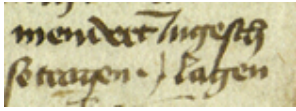 mendert Jngesch
so tragen . lagen